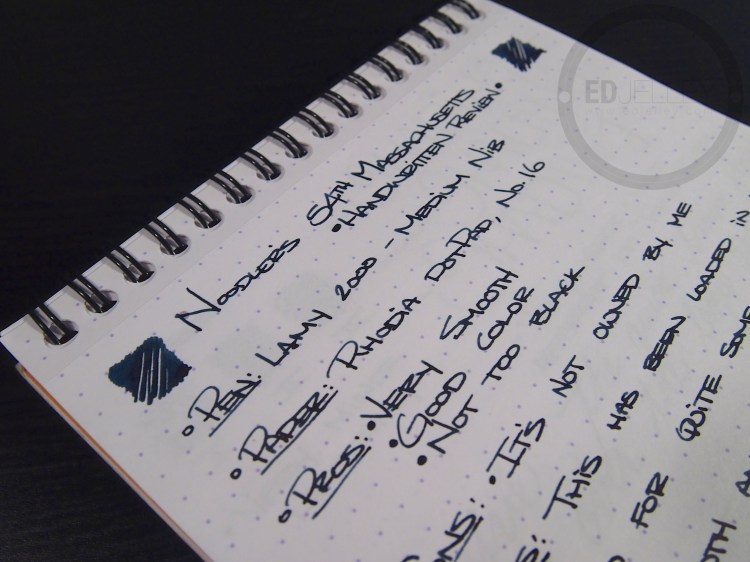 NOODLER'S 54TH MASSACHUSETTS
• HANDWRITTEN REVIEW •
• PEN: LAMY 2000 - MEDIUM NIB
• PAPER: RHODIA DOTPAD, No. 16
• PROS: • VERY SMOOTH
• GOOD COLOR
• NOT TOO BLACK
• IT'S NOT OWNED BY ME
THIS HAS BEEN LOADED IN
FOR QUITE SOME
ED